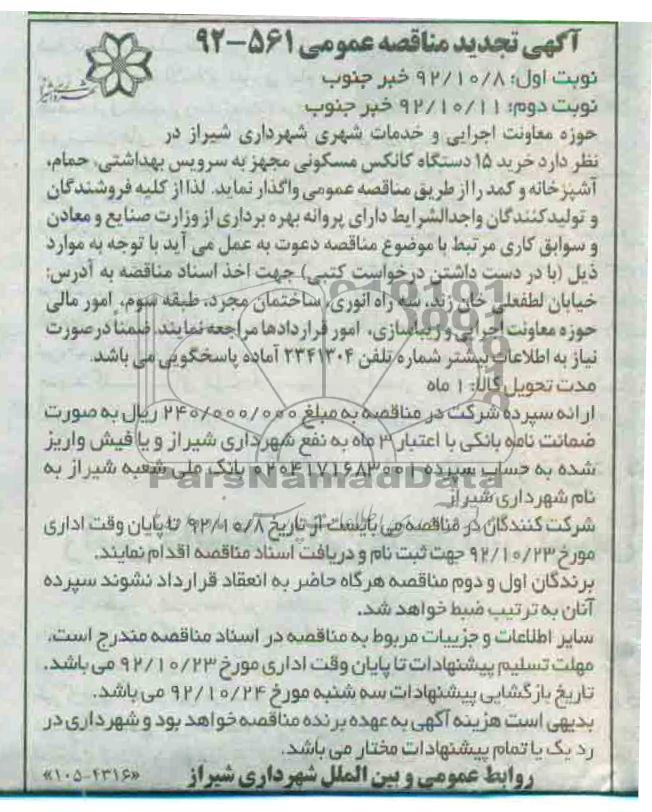 آگهی تجدید مناقصه عمومی ۵۶۱-۹۲
نوبت اول: ۹۲/۱۰/۸ خبر جنوب
نوبت دوم: ۹۲/۱۰/۱۱ خبر جنوب
حوزه معاونت اجرایی و خدمات شهری شهرداری شیراز در
نظر دارد خرید ۱۵ دستگاه کانکس مسکونی مجهز به سرویس بهداشتی، حمام،
آشپزخانه و کمد را از طریق مناقصه عمومی واگذار نماید. لذا از کلیه فروشندگان
و تولیدکنندگان واجدالشرایط دارای پروانه بهره برداری از وزارت صنایع و معادن
و سوابق کاری مرتبط با موضوع مناقصه دعوت به عمل می آید با توجه به موارد
ذیل (با در دست داشتن درخواست کتبی) جهت اخذ اسناد مناقصه به آدرس:
خیابان لطفعلی خان زند، سه راه انوری، ساختمان مجرد، طبقه سوم، امور مالی
حوزه معاونت اجرایی و زیباسازی، امور قراردادها مراجعه نمایند. ضمناً در صورت
نیاز به اطلاعات بیشتر شماره تلفن ۲۳۴۱۳۰۴ آماده پاسخگویی می باشد.
مدت تحویل کالا: ۱ ماه
ارائه سپرده شرکت در مناقصه به مبلغ ۲۴۰/۰۰۰/۰۰۰ ریال به صورت
ضمانت نامه بانکی با اعتبار ۳ ماه به نفع شهرداری شیراز و یا فیش واریز
شده به حساب سپرده ۰۲۰۴۱۷۱۶۸۳۰۰۱ بانک ملی شعبه شیراز به
نام شهرداری شیراز
شرکت کنندگان در مناقصه می بایست از تاریخ ۹۲/۱۰/۸ تا پایان وقت اداری
مورخ ۹۲/۱۰/۲۳ جهت ثبت نام و دریافت اسناد مناقصه اقدام نمایند.
برندگان اول و دوم مناقصه هرگاه حاضر به انعقاد قرارداد نشوند سپرده
آنان به ترتیب ضبط خواهد شد.
سایر اطلاعات و جزییات مربوط به مناقصه در اسناد مناقصه مندرج است.
مهلت تسلیم پیشنهادات تا پایان وقت اداری مورخ ۹۲/۱۰/۲۳ می باشد.
تاریخ بازگشایی پیشنهادات سه شنبه مورخ ۹۲/۱۰/۲۴ می باشد.
بدیهی است هزینه آگهی به عهده برنده مناقصه خواهد بود و شهرداری در
رد یک یا تمام پیشنهادات مختار می باشد.
روابط عمومی و بین الملل شهرداری شیراز
«۱۰۵-۴۳۱۶»
ParsNamadData